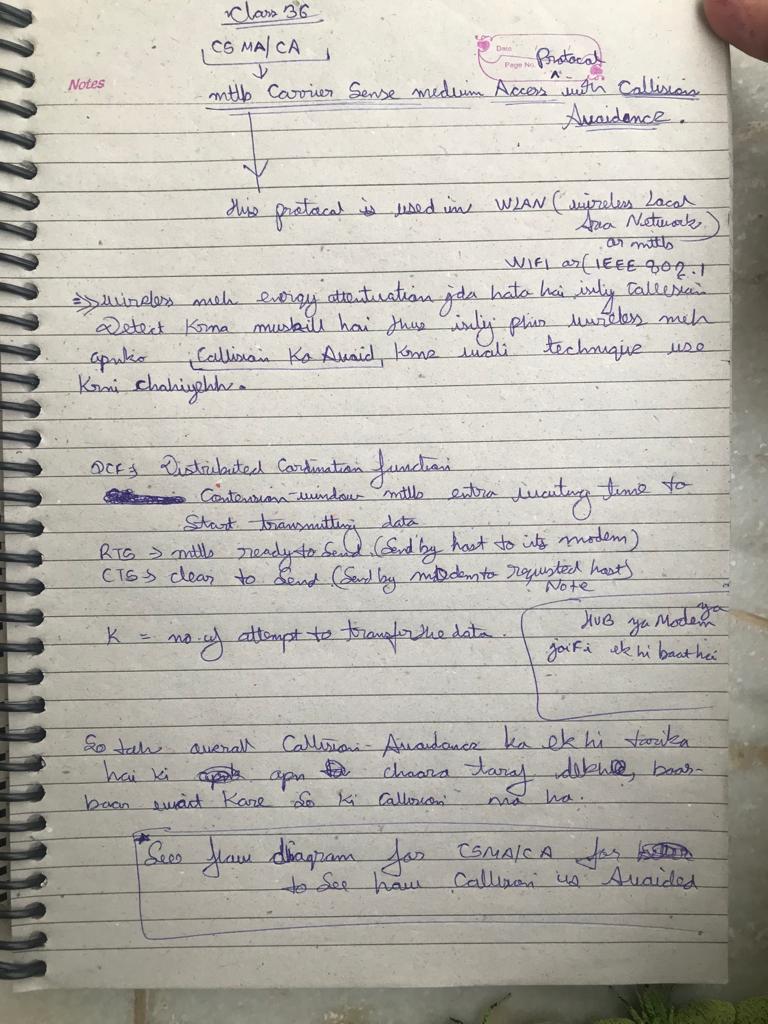 Class 36
CSMA/CA
Date
Page No.
Protocal
Notes
mtlb Carrier Sense medium Access with Callision
Avaidance.
this protocal is used in WLAN (wireless Lacal
Area Network)
or mtlb
WIFI or (IEEE 802.1
=>> wireless meh energy attentuation jda hata hai isliy Callesian
Detect Krna muskill hai thus isliy phir wireless meh
apnko Callisian Ka Avaid, Krne wali technique use
Krni chahiyehh.
DCF → Distributed Cordination function
Contension-window mtlb extra waiting time to
Start transmitting data
RTS → mtlb ready to Send (Send by host to its modem)
CTS → clear to Send (Send by modem to requsted host)
Note
HUB ya Modem ya
K = no. of attempt to transfer the data.
joiFi ek hi baat hai
So tah overall Callision-Avaidance ka ek hi tarika
hai ki apn chaara taraf dekhe, baar-
baar wait Kare So ki Callision na ho.
* See flaw diagram for CSMA/CA for
to See haw Callision is Avaided